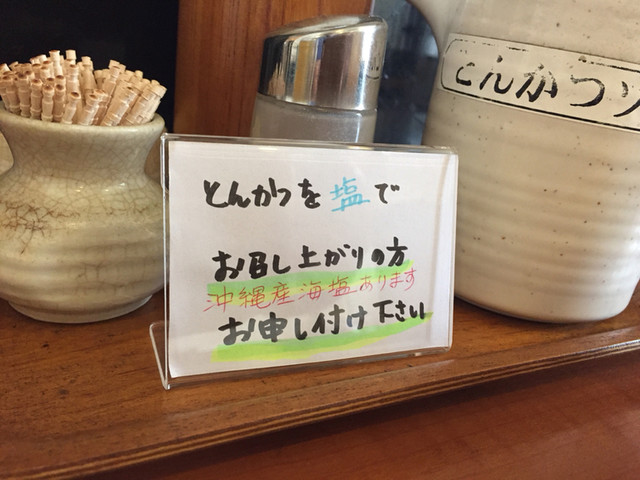 とんかつを塩で
お召し上がりの方
沖縄産海塩あります
お申し付け下さい
とんかつソ